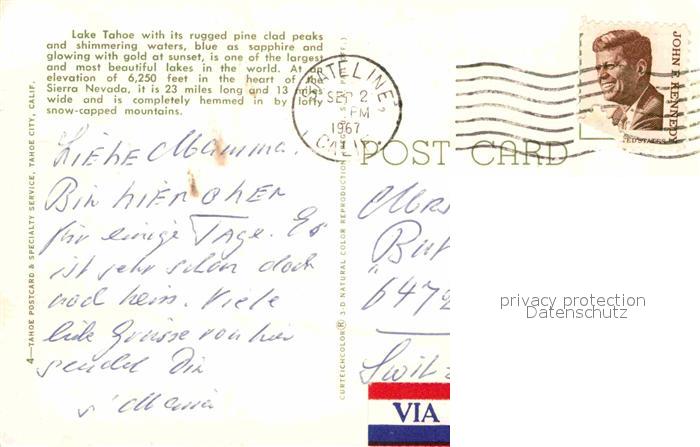 Lake Tahoe with its rugged pine clad peaks
and shimmering waters, blue as sapphire and
glowing with gold at sunset, is one of the largest
and most beautiful lakes in the world. At an
elevation of 6,250 feet in the heart of the
Sierra Nevada, it is 23 miles long and 13 miles
wide and is completely hemmed in by lofty
snow-capped mountains.
STATELINE,
SEP 2
PM
1967
CALIF.
JOHN F. KENNEDY
POST CARD
Liebe Mamma.
Bin hier oben
für einige Tage. Es
ist sehr schön doch
Viele
liebe Grüsse von hier
sendet Dir
s'
Mrs
But
6472
Switz
VIA
4—TAHOE POSTCARD & SPECIALTY SERVICE, TAHOE CITY, CALIF.
CURTEICHCOLOR® 3-D NATURAL COLOR REPRODUCTION
privacy protection
Datenschutz